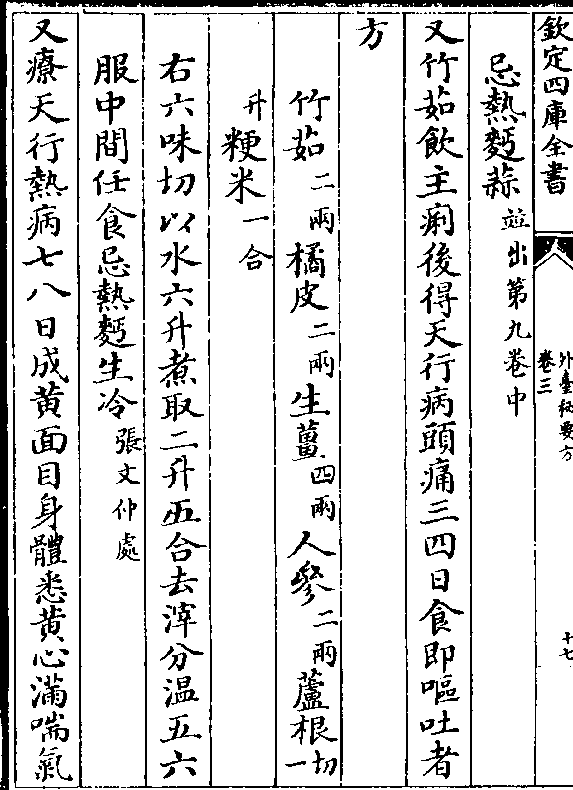 欽定四庫全書
外臺秘要方
卷三
十七
忌熱麪蒜並出第九卷中
又竹茹飲主痢後得天行病頭痛三四日食即嘔吐者
方
竹茹二兩橘皮二兩生薑四兩人參二兩蘆根切一
升粳米一合
右六味切以水六升煮取二升五合去滓分温五六
服中間任食忌熱麪生冷張文仲處
又療天行熱病七八日成黄面目身體悉黄心滿喘氣